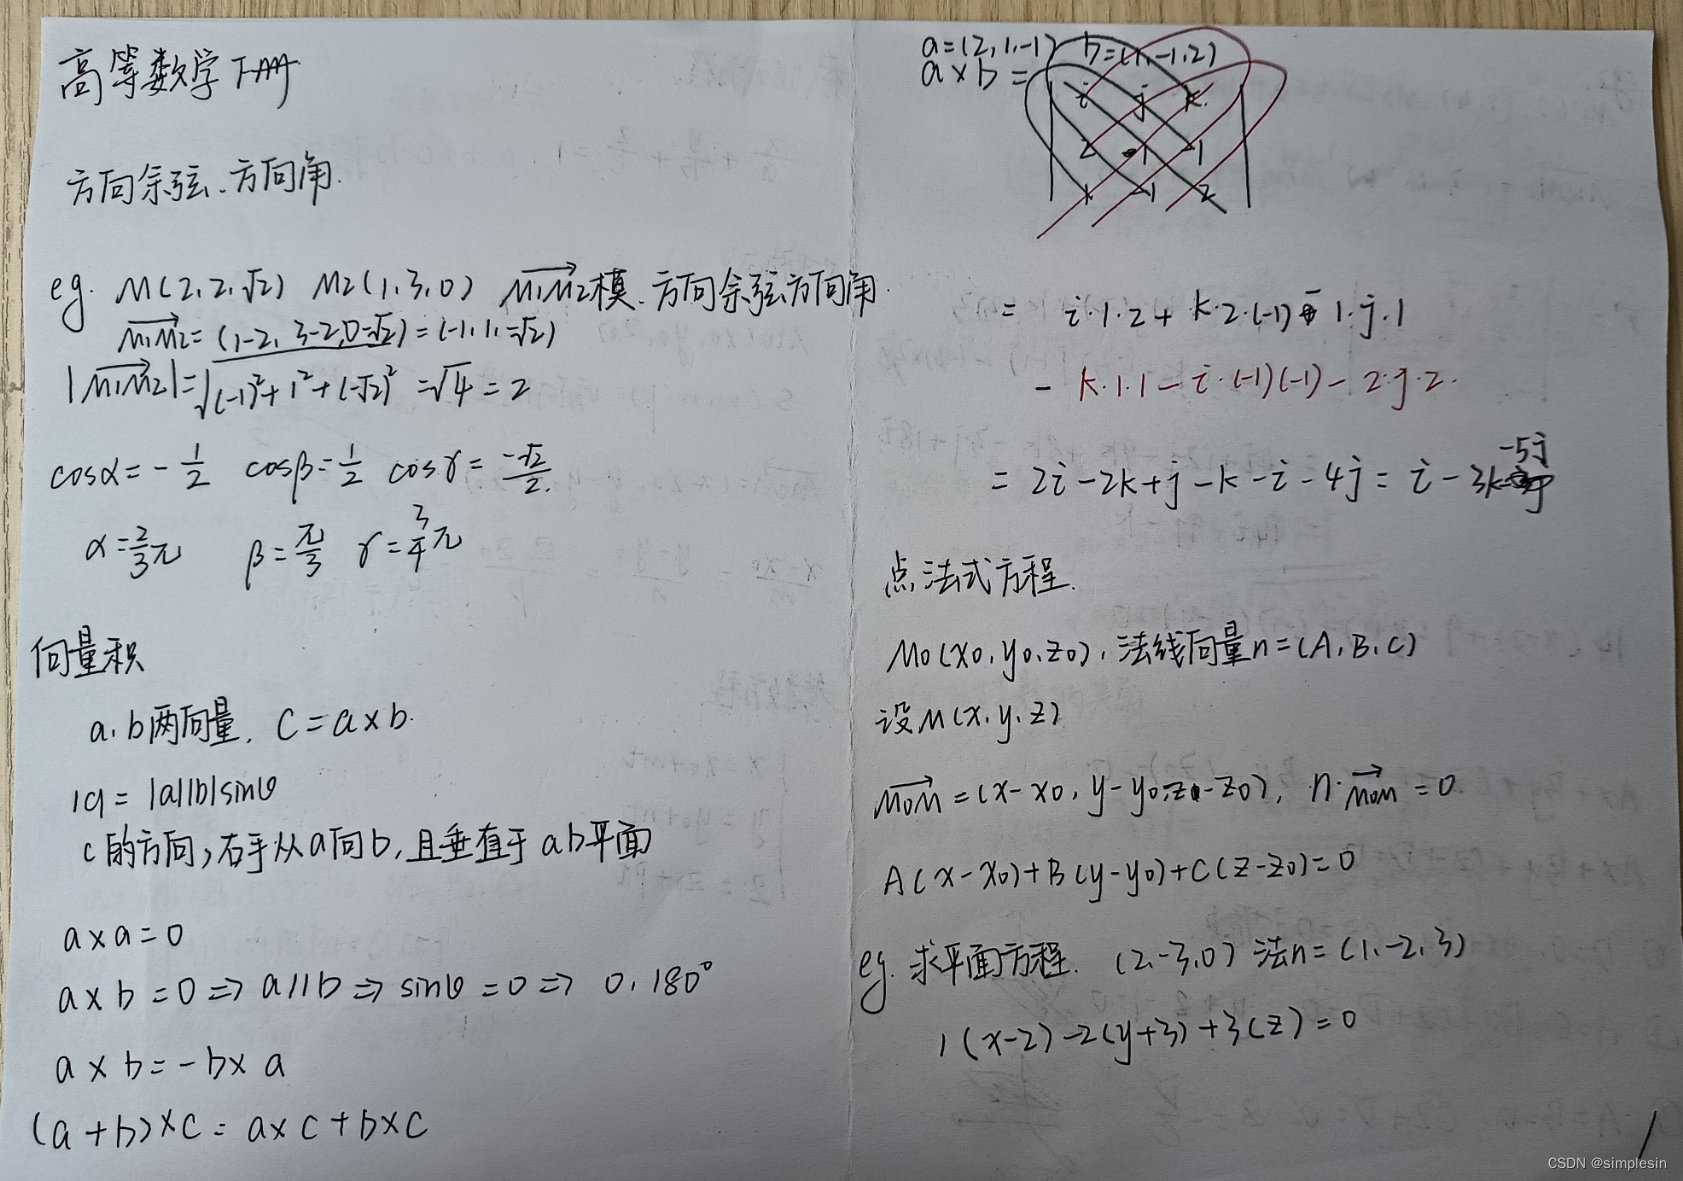 高等数学下册
方向余弦、方向角.
eg. M(2,2,√2) M2(1,3,0) M1M2模、方向余弦方向角.
M1M2=(1-2, 3-2,0-√2)=(-1,1,-√2)
|M1M2|=√(-1)²+1²+(-√2)² =√4=2
cosα=-1/2 cosβ=1/2 cosγ=-√2/2.
α=2/3π β=π/3 γ=3/4π
向量积
a,b两向量, C=a×b.
|c|=|a||b|sinθ
c的方向,右手从a向b,且垂直于ab平面
a×a=0
a×b=0=>a//b=>sinθ=0=> 0,180°
a×b=-b×a
(a+b)×c=a×c+b×c
a=(2,1,-1) b=(1,-1,2)
a×b=
i j k
2 1 -1
1 -1 2
= i·1·2+k·2·(-1)+1·j·1
- k·1·1-i·(-1)(-1)-2·j·2.
=2i-2k+j-k-i-4j=i-3k-5j
点法式方程.
M0(x0,y0,z0),法线向量n=(A,B,C)
设M(x,y,z)
M0M=(x-x0,y-y0,z-z0), n·M0M=0
A(x-x0)+B(y-y0)+C(z-z0)=0
eg. 求平面方程. (2,-3,0) 法n=(1,-2,3)
1(x-2)-2(y+3)+3(z)=0
1
CSDN @simplesin